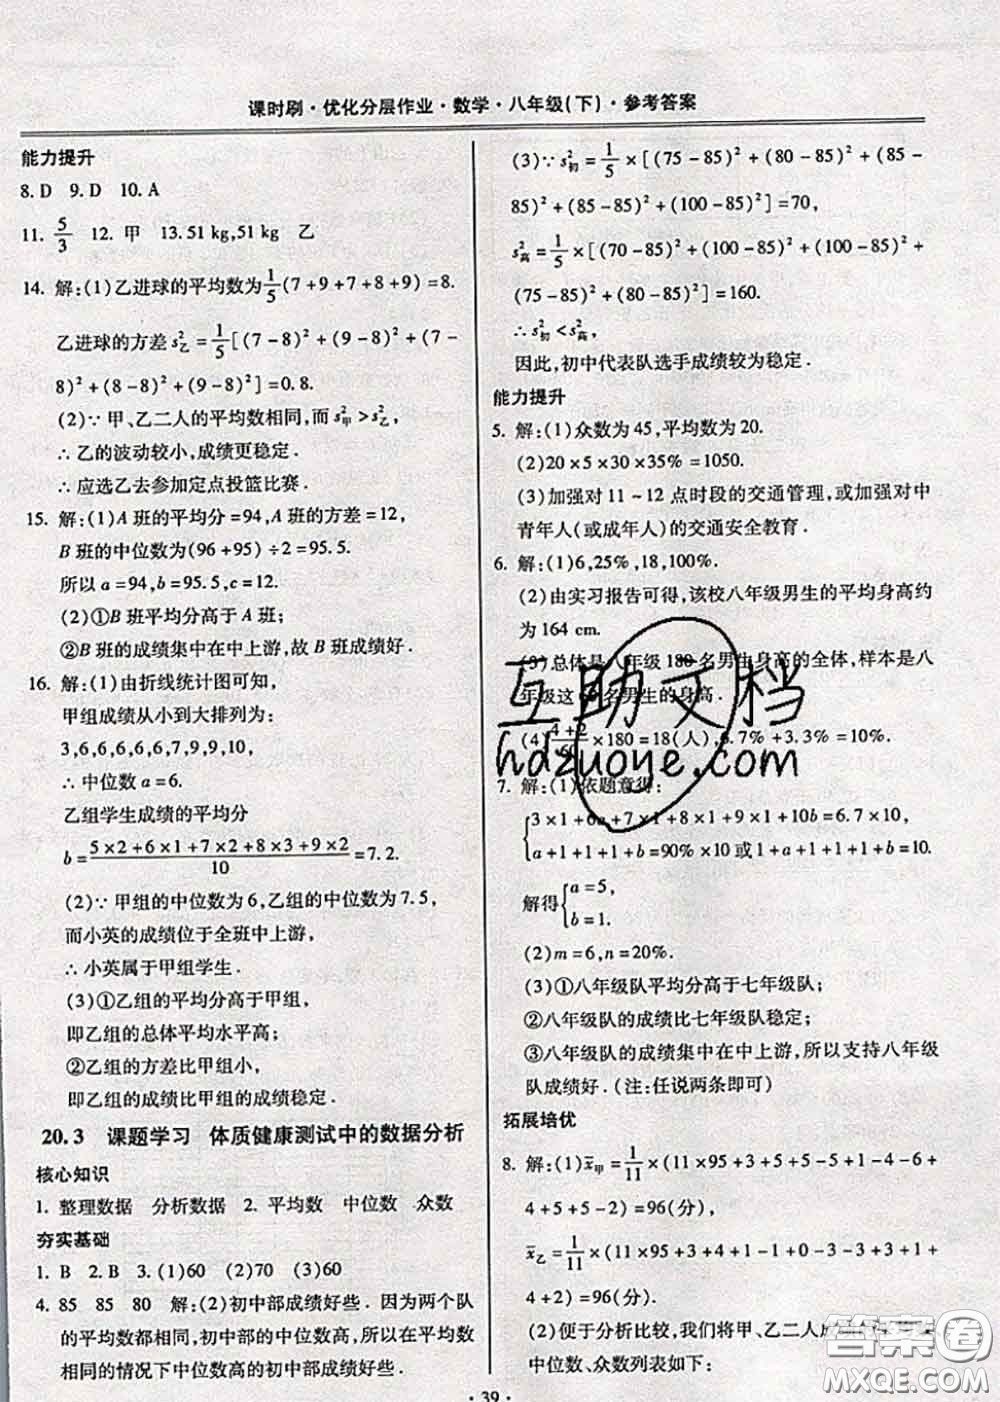 课时刷·优化分层作业·数学·八年级(下)·参考答案
能力提升
8. D 9. D 10. A
11. 5/3 12. 甲 13. 51 kg,51 kg 乙
14. 解:(1)乙进球的平均数为1/5(7+9+7+8+9)=8.
乙进球的方差s²乙=1/5[(7-8)²+(9-8)²+(7-
8)²+(8-8)²+(9-8)²]=0.8.
(2)∵甲、乙二人的平均数相同,而s²甲>s²乙,
∴乙的波动较小,成绩更稳定.
∴应选乙去参加定点投篮比赛.
15. 解:(1)A班的平均分=94,A班的方差=12,
B班的中位数为(96+95)÷2=95.5.
所以a=94,b=95.5,c=12.
(2)①B班平均分高于A班;
②B班的成绩集中在中上游,故B班成绩好.
16. 解:(1)由折线统计图可知,
甲组成绩从小到大排列为:
3,6,6,6,6,6,7,9,9,10,
∴中位数a=6.
乙组学生成绩的平均分
b=(5×2+6×1+7×2+8×3+9×2)/10=7.2.
(2)∵甲组的中位数为6,乙组的中位数为7.5,
而小英的成绩位于全班中上游,
∴小英属于甲组学生.
(3)①乙组的平均分高于甲组,
即乙组的总体平均水平高;
②乙组的方差比甲组小,
即乙组的成绩比甲组的成绩稳定.
20.3 课题学习 体质健康测试中的数据分析
核心知识
1. 整理数据 分析数据 2. 平均数 中位数 众数
夯实基础
1. B 2. B 3. (1)60 (2)70 (3)60
4. 85 85 80 解:(2)初中部成绩好些.因为两个队
的平均数都相同,初中部的中位数高,所以在平均数
相同的情况下中位数高的初中部成绩好些.
(3)∵s²初=1/5×[(75-85)²+(80-85)²+(85-
85)²+(85-85)²+(100-85)²]=70,
s²高=1/5×[(70-85)²+(100-85)²+(100-85)²+
(75-85)²+(80-85)²]=160.
∴s²初<s²高,
因此,初中代表队选手成绩较为稳定.
能力提升
5. 解:(1)众数为45,平均数为20.
(2)20×5×30×35%=1050.
(3)加强对11~12点时段的交通管理,或加强对中
青年人(或成年人)的交通安全教育.
6. 解:(1)6,25%,18,100%.
(2)由实习报告可得,该校八年级男生的平均身高约
为164 cm.
(3)总体是八年级180名男生身高的全体,样本是八
年级这60名男生的身高.
(4)(4+2)/60×180=18(人),6.7%+3.3%=10%.
7. 解:(1)依题意得:
{3×1+6a+7×1+8×1+9×1+10b=6.7×10,
a+1+1+1+b=90%×10或1+a+1+1+1+b=10.
解得{a=5,
b=1.
(2)m=6,n=20%.
(3)①八年级队平均分高于七年级队;
②八年级队的成绩比七年级队稳定;
③八年级队的成绩集中在中上游,所以支持八年级
队成绩好.(注:任说两条即可)
拓展培优
8. 解:(1)x̄甲=1/11×(11×95+3+2-1-2-1-2+
4+5+5-2)=96(分),
x̄乙=1/11×(11×95+3+4+1+
2)=96(分).
(2)便于分析比较,我们将甲、乙二人成绩
中位数、众数列表如下:
·39·
互助文档
hdzuoye.com
答案卷
MXQE.COM